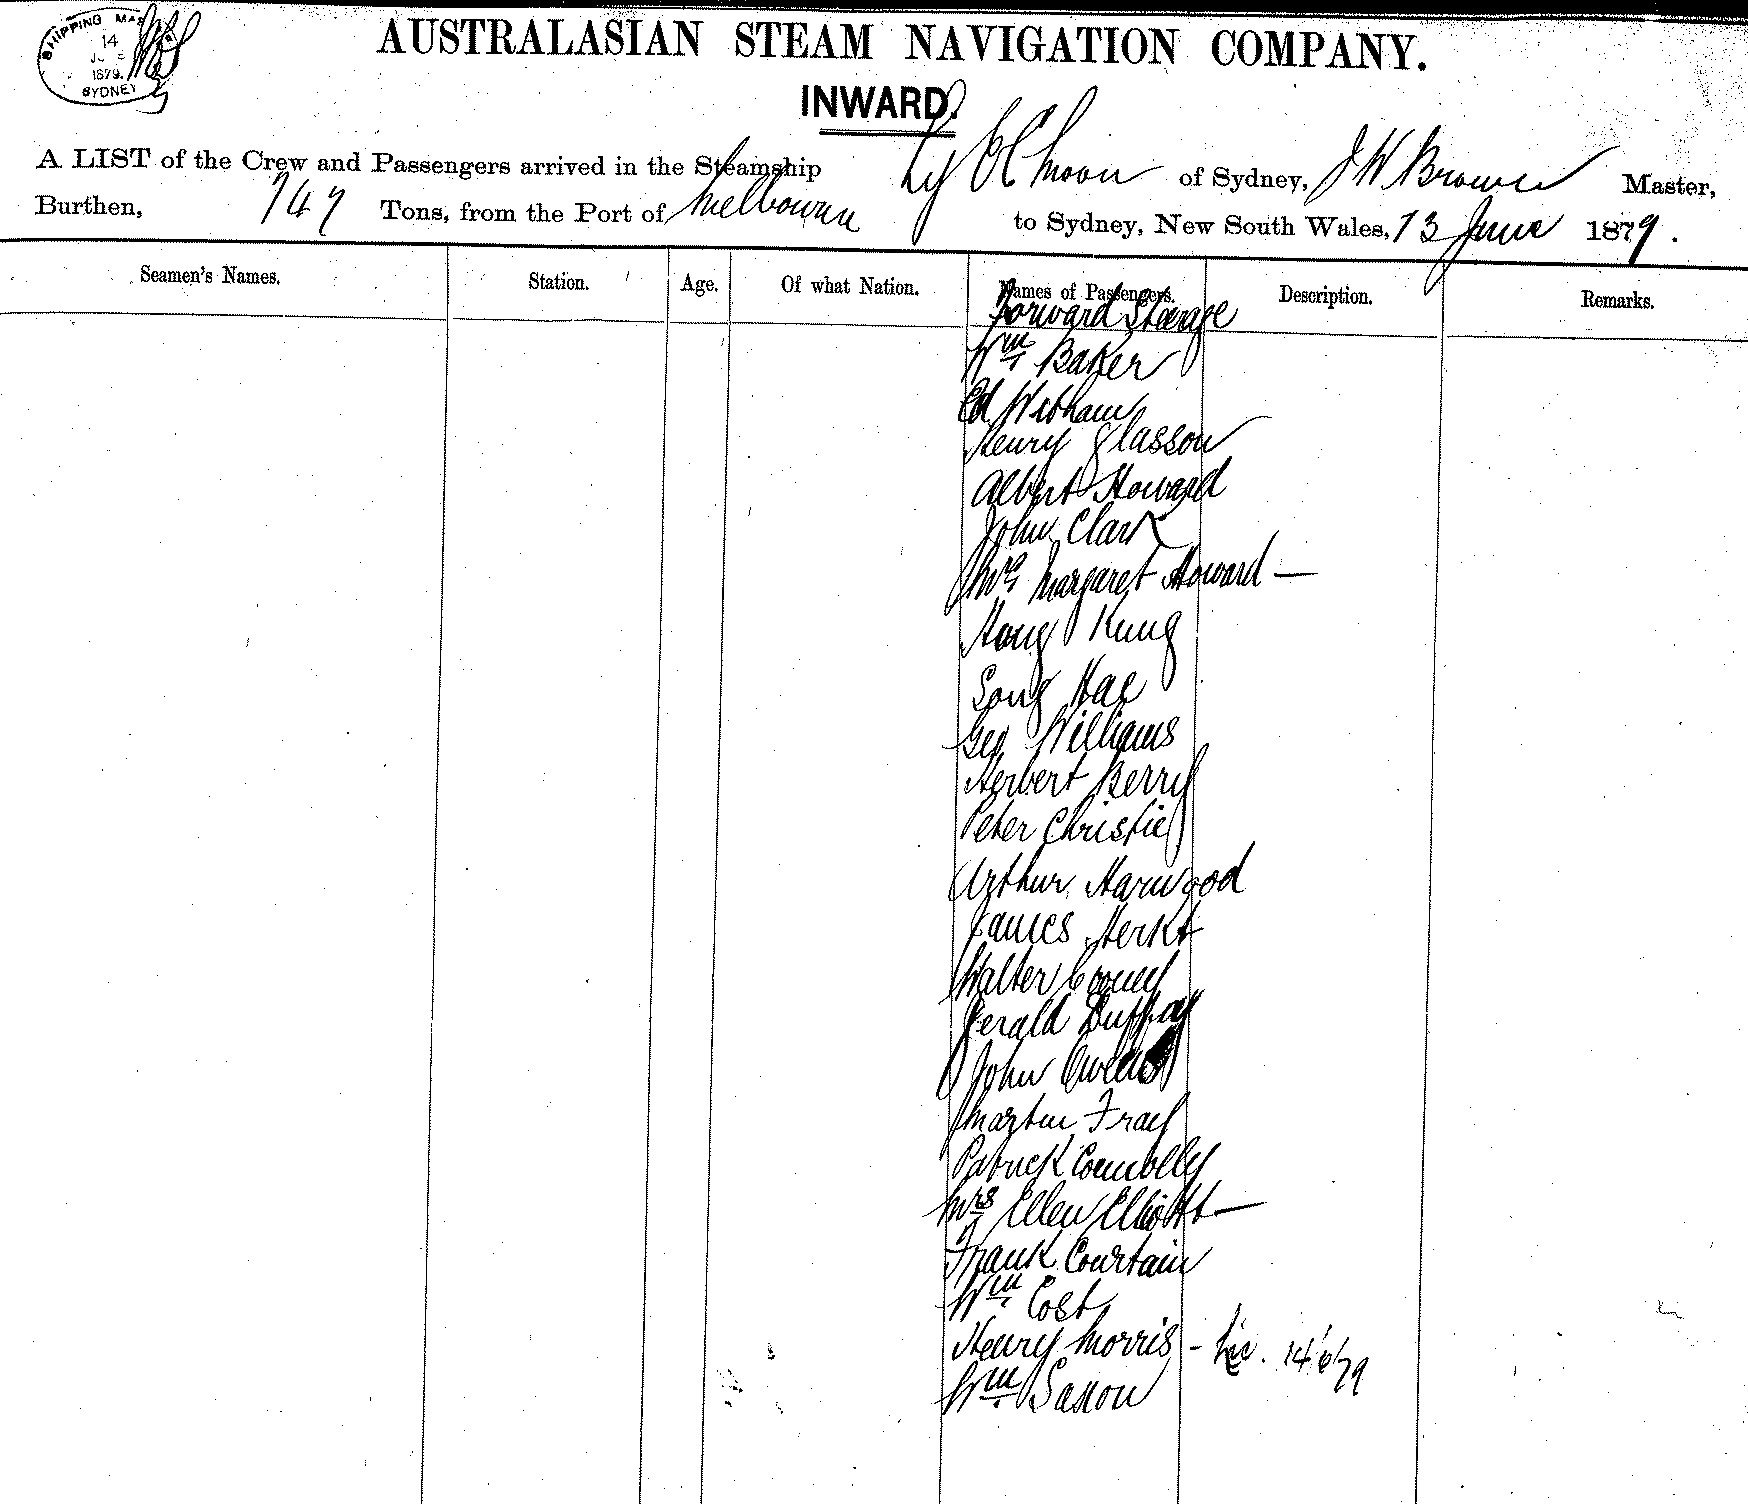 SHIPPING MAS
14
1879.
SYDNEY
AUSTRALASIAN STEAM NAVIGATION COMPANY.
INWARD.
A LIST of the Crew and Passengers arrived in the Steamship Ly EE Moon of Sydney, J W Brown Master,
Burthen, 747 Tons, from the Port of Melbourne to Sydney, New South Wales, 13 June 1879.
Seamen's Names. Station. Age. Of what Nation. Names of Passengers. Description. Remarks.
Forward Steerage
Wm Baker
Ed Witham
Henry Glasson
Albert Howard
John Clark
Mrs Margaret Howard —
Hong Kung
Song Hae
Geo Williams
Herbert Berry
Peter Christie
Arthur Harwood
James Herkt
Walter
Gerald Duffray
John Owens
Martin Fray
Patrick Connolly
Mrs Ellen Elliott —
Frank Courtain
Wm Cost
Henry Morris - 14/6/79
Wm Saxon